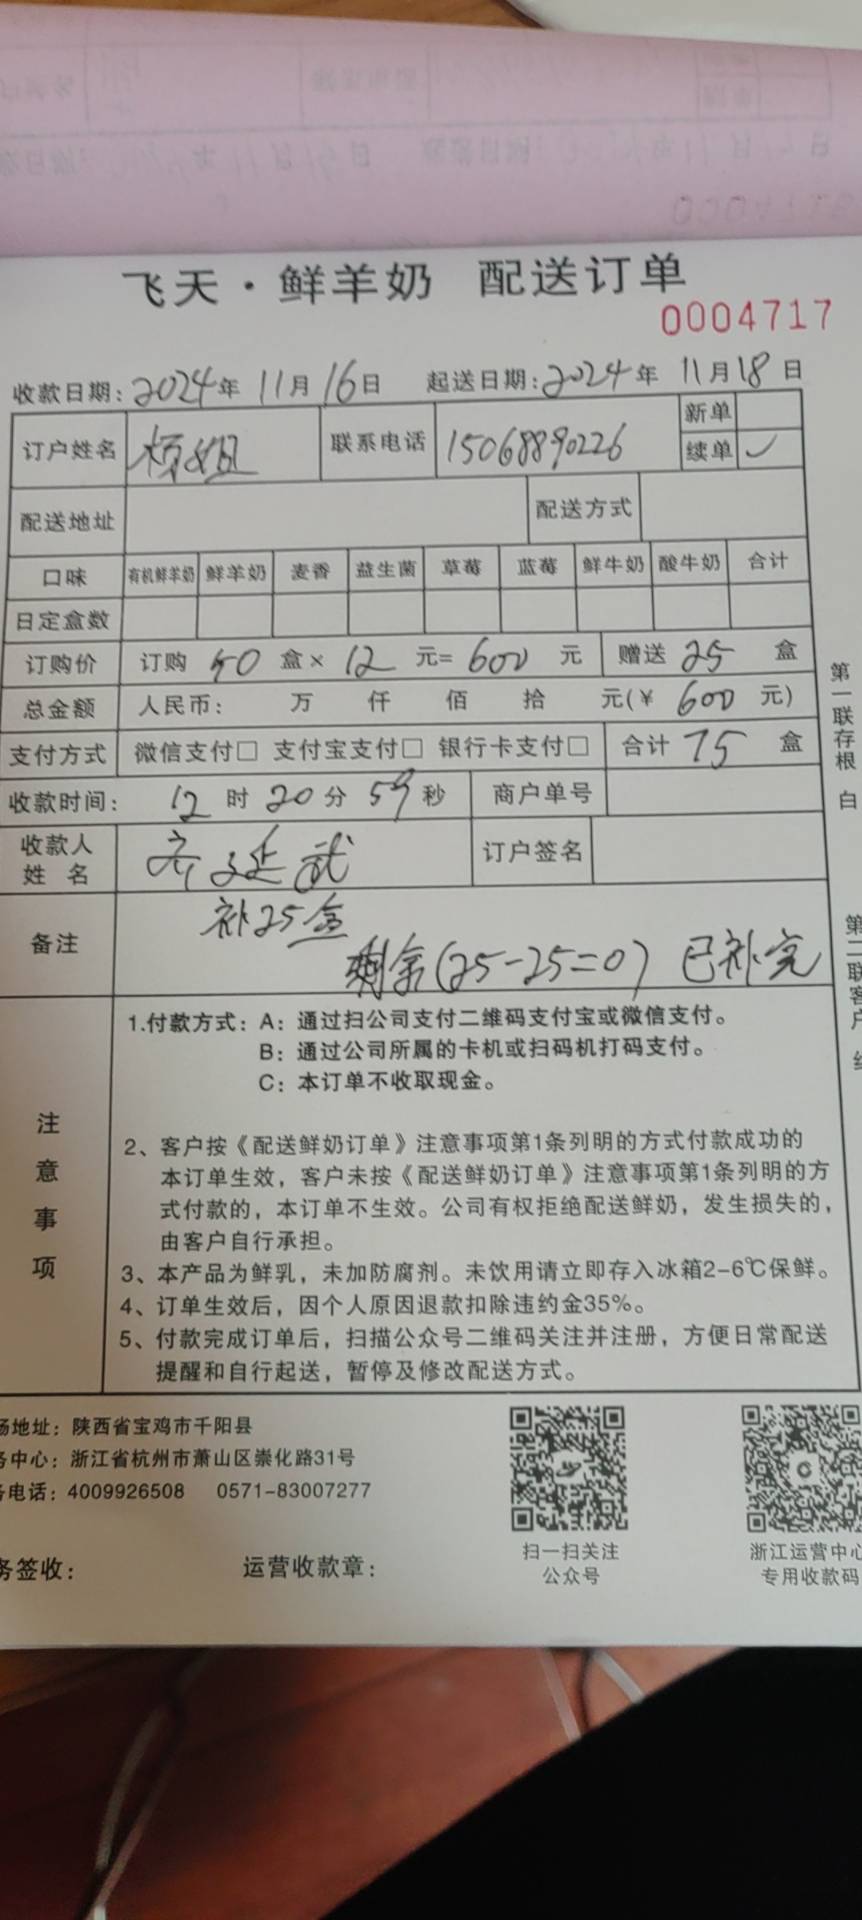 飞天·鲜羊奶 配送订单
0004717
收款日期:2024年11月16日 起送日期:2024年11月18日
订户姓名 杨姐 联系电话 15068890226 新单
续单 ✓
配送地址 配送方式
口味 有机鲜羊奶 鲜羊奶 麦香 益生菌 草莓 蓝莓 鲜牛奶 酸牛奶 合计
日定盒数
订购价 订购 50 盒× 12 元= 600 元 赠送 25 盒
总金额 人民币: 万 仟 佰 拾 元(¥ 600 元)
支付方式 微信支付□ 支付宝支付□ 银行卡支付□ 合计 75 盒
收款时间: 12 时 20 分 59 秒 商户单号
收款人
姓 名 齐廷武 订户签名
备注 补25盒
剩余(25-25=0) 已补完
注意事项
1.付款方式:A:通过扫公司支付二维码支付宝或微信支付。
B:通过公司所属的卡机或扫码机打码支付。
C:本订单不收取现金。
2、客户按《配送鲜奶订单》注意事项第1条列明的方式付款成功的
本订单生效,客户未按《配送鲜奶订单》注意事项第1条列明的方
式付款的,本订单不生效。公司有权拒绝配送鲜奶,发生损失的,
由客户自行承担。
3、本产品为鲜乳,未加防腐剂。未饮用请立即存入冰箱2-6℃保鲜。
4、订单生效后,因个人原因退款扣除违约金35%。
5、付款完成订单后,扫描公众号二维码关注并注册,方便日常配送
提醒和自行起送,暂停及修改配送方式。
第一联存根 白
第二联客户 红
场地址:陕西省宝鸡市千阳县
务中心:浙江省杭州市萧山区崇化路31号
务电话:4009926508 0571-83007277
务签收: 运营收款章:
扫一扫关注
公众号
浙江运营中心
专用收款码